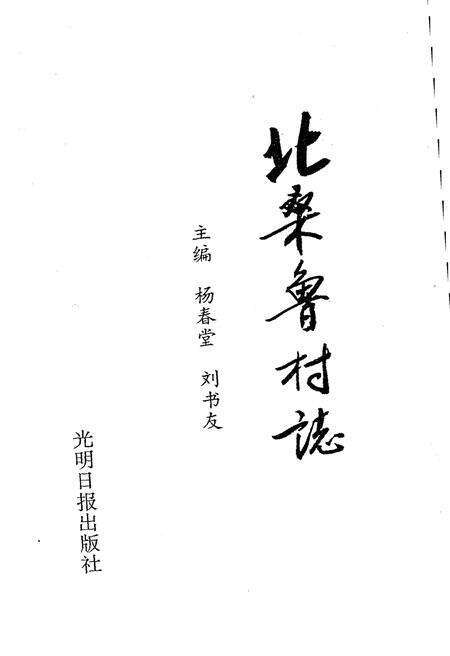 北桑魯村誌
主编 杨春堂 刘书友
光明日报出版社